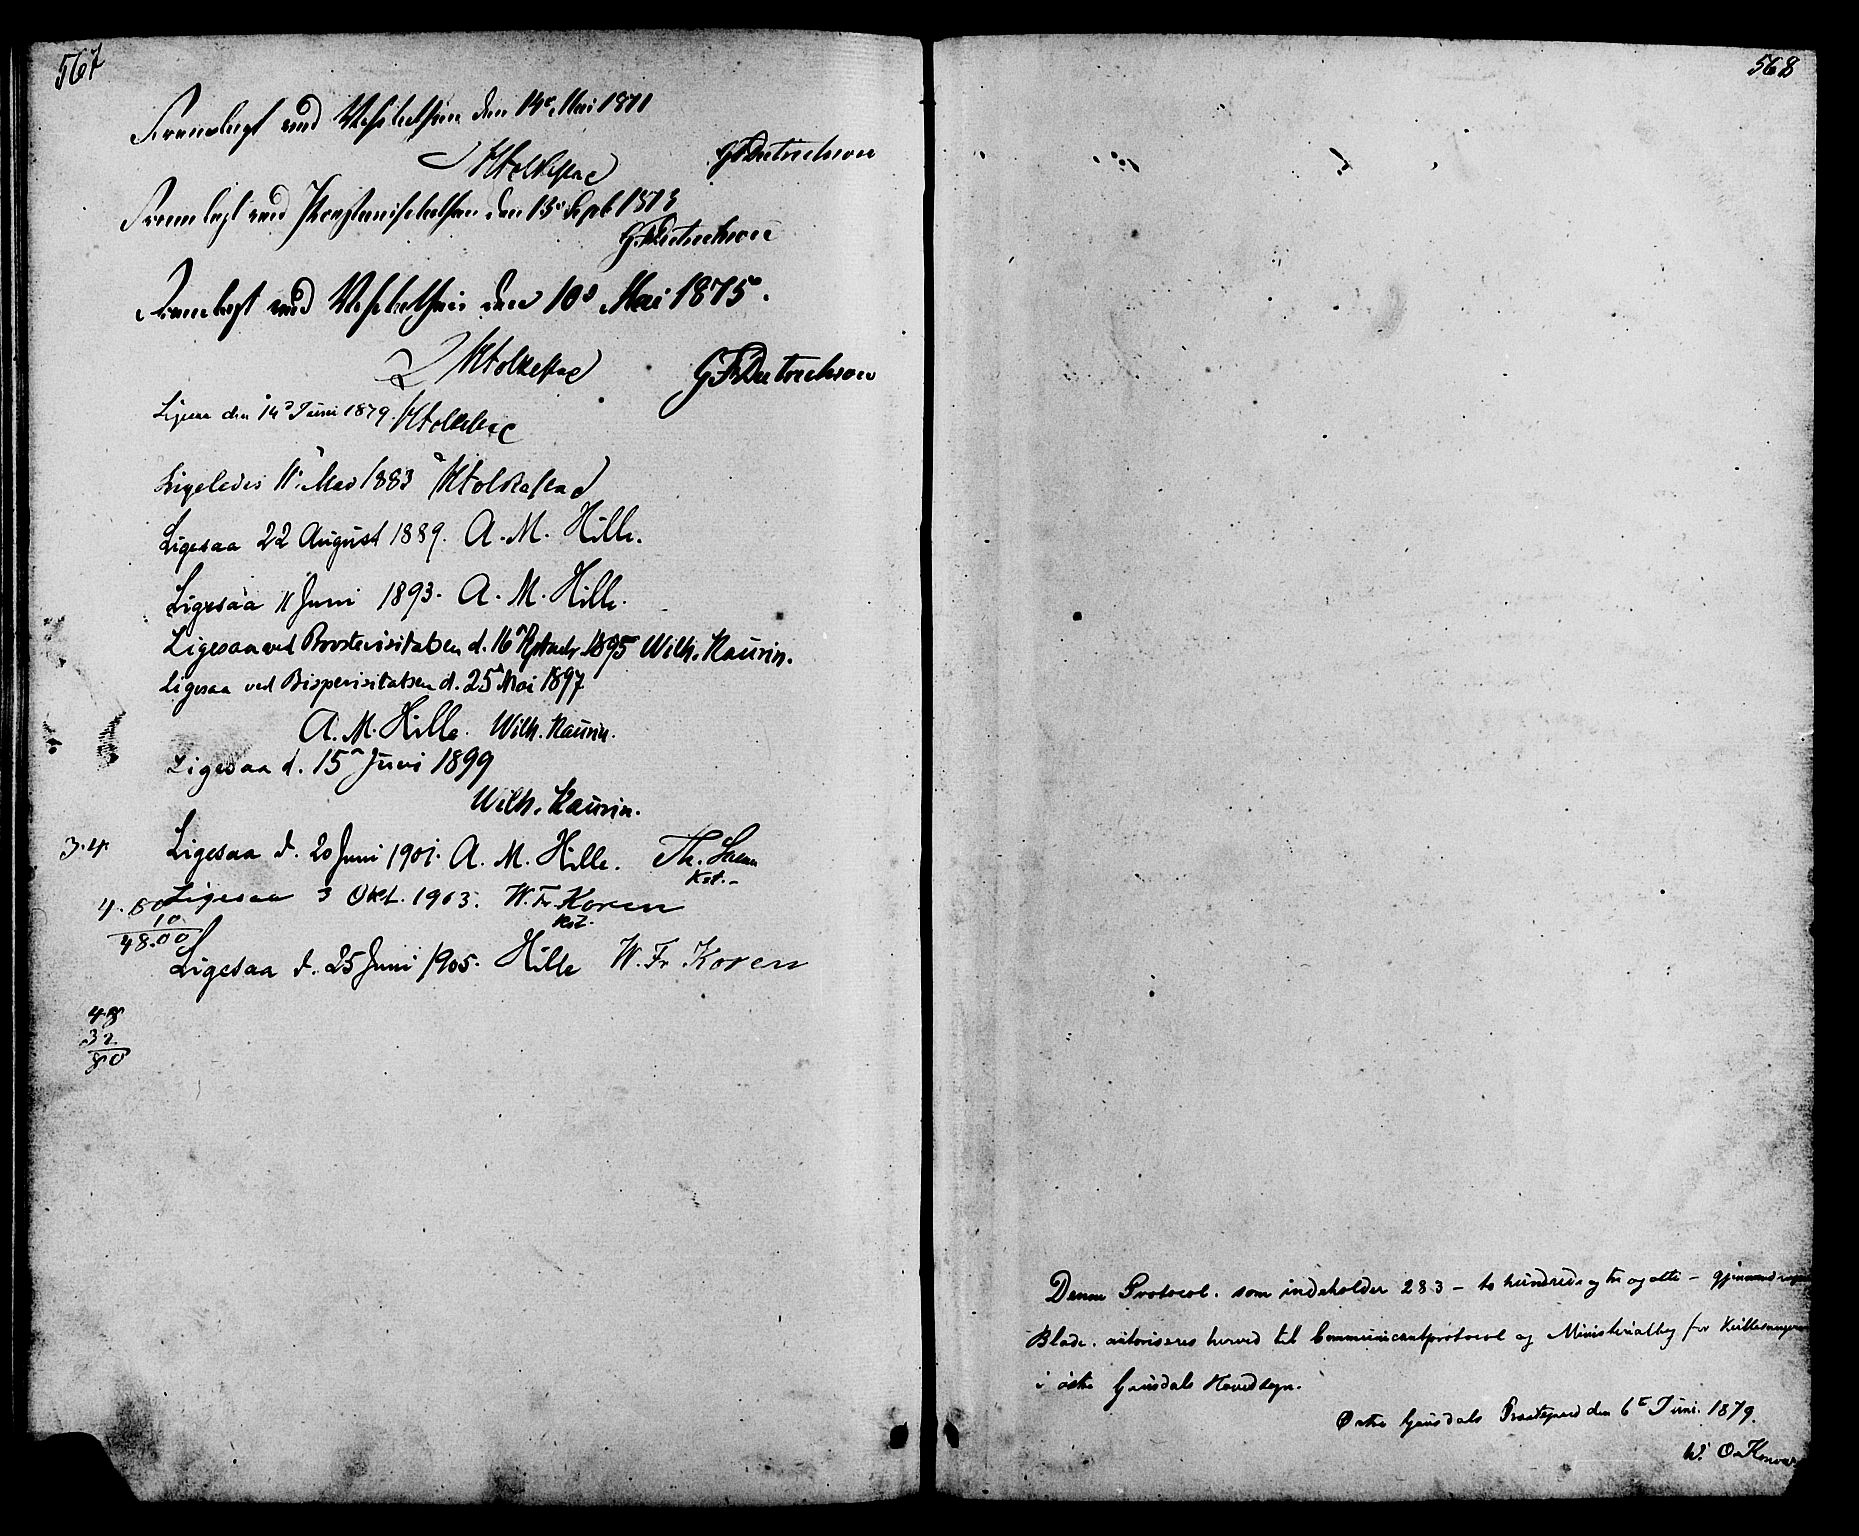 567
Fremlagt ved Visitatsen den 14de Mai 1871
G F Dietrichson
Fremlagt ved Provstevisitatsen den 13de Sept 1873
G F Dietrichson
Fremlagt ved Visitatsen den 10de Mai 1875.
G F Dietrichson
Ligesaa den 14de Juni 1879.
Ligeledes 11te Mai 1883
Ligesaa 22 August 1889. A. M. Hille.
Ligesaa 11 Juni 1893. A. M. Hille.
Ligesaa ved Provstevisitatsen d. 16de 1895 Wilh. Kaurin.
Ligesaa ved Bispevisitatsen d. 25de Mai 1897
A. M. Hille. Wilh. Kaurin.
Ligesaa d. 15de Juni 1899
Wilh. Kaurin.
3.4.
Ligesaa d. 20 Juni 1901. A. M. Hille. Th.
Kst.
Ligesaa 3 Okt. 1903. W. Fr. Koren
Kst.
4.80
10
48.00
Ligesaa d. 25 Juni 1905. Hille W. Fr Koren
48
32
80
568
Denne Protocol, som indeholder 283 – to hundrede og tre og otti – gjennemdragne
Blade, autoriseres herved til Communicantprotocol og Ministerialbog for
i østre Gausdals Hovedsogn.
Østre Gausdals Præstegaard den 6te Juni 1879.